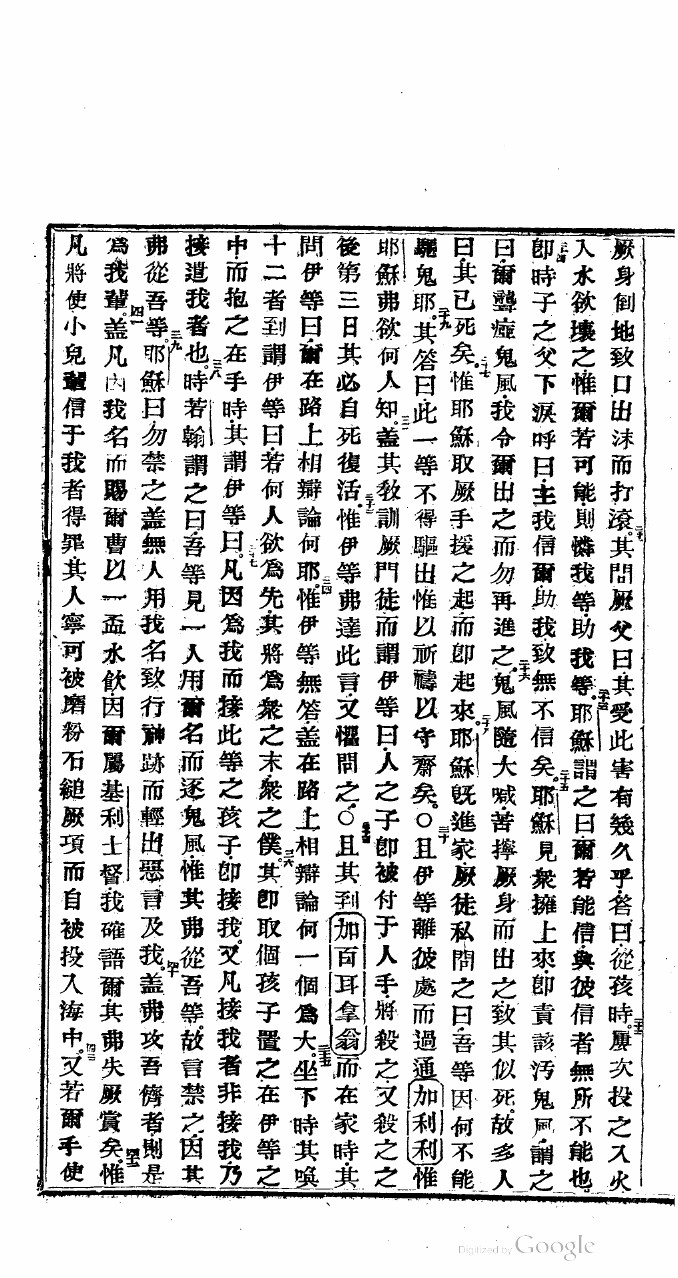 厥身倒地致口出沫而打滾。其問厥父曰其受此害有幾久乎。答曰從孩時。屢次投之入火
入水欲壞之惟爾若可能則憐我等助我等。耶穌謂之曰爾若能信與彼信者無所不能也
卽時子之父下淚呼曰主我信爾助我致無不信矣。耶穌見衆擁上來卽責該汚鬼風謂之
曰爾聾瘂鬼風我令爾出之而勿再進之。鬼風隨大喊苦擰厥身而出之致其似死。故多人
曰其已死矣。惟耶穌取厥手援之起而卽起來。耶穌旣進家厥徒私問之曰吾等因何不能
驅鬼耶。其答曰此一等不得驅出惟以祈禱以守齋矣。〇且伊等離彼處而過通加利利惟
耶穌弗欲何人知。蓋其敎訓厥門徒而謂伊等曰人之子卽被付于人手將殺之又殺之之
後第三日其必自死復活。惟伊等弗達此言又懼問之。〇且其到加百耳拿翁而在家時其
問伊等曰爾在路上相辯論何耶。惟伊等無答蓋在路上相辯論何一個爲大。坐下時其喚
十二者到謂伊等曰若何人欲爲先其將爲衆之末衆之僕。其卽取個孩子置之在伊等之
中而抱之在手時其謂伊等曰。凡因爲我而接此等之孩子卽接我。又凡接我者非接我乃
接遣我者也。時若翰謂之曰吾等見一人用爾名而逐鬼風惟其弗從吾等。故言禁之因其
弗從吾等。耶穌曰勿禁之蓋無人用我名致行神跡而輕出惡言及我。蓋弗攻吾儕者則是
爲我輩。蓋凡因我名而賜爾曹以一盃水飲因爾屬基利士督我確語爾其弗失厥賞矣。惟
凡將使小兒輩信于我者得罪其人寧可被磨粉石縋厥項而自被投入海中。又若爾手使
二十五
二十九
三十
三十三
三十四
三十五
三十六
三十七
三十八
三十九
四十
四一
四二
四三
Digitized by Google